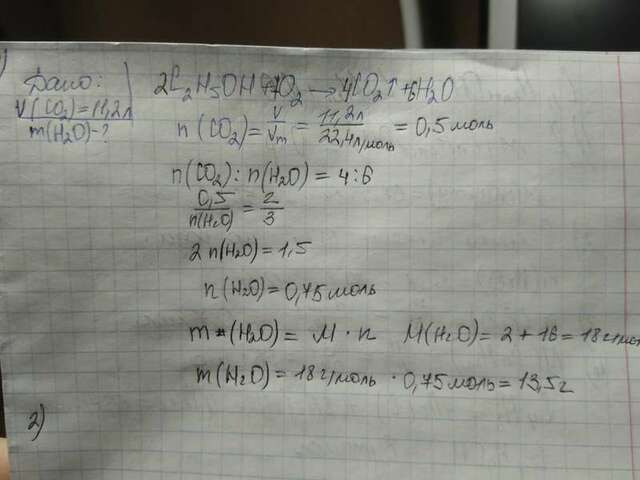 Дано:
V(CO₂)=11,2л
m(H₂O)-?
2C₂H5OH+7O₂→4CO₂↑+6H₂O
n(CO₂)=V/Vm=11,2л/22,4л/моль=0,5моль
n(CO₂):n(H₂O)=4:6
0,5/n(H₂O)=2/3
2n(H₂O)=1,5
n(H₂O)=0,75моль
m(H₂O)=M·n M(H₂O)=2+16=18г/мол
m(H₂O)=18г/моль·0,75моль=13,5г
2)